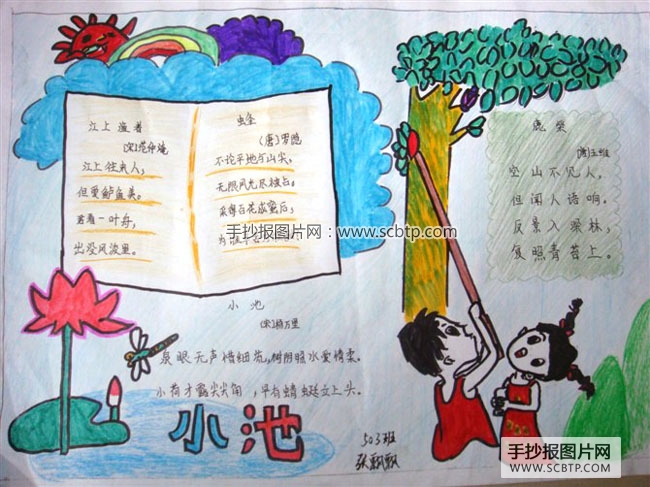 江上渔者
(宋)范仲淹
江上往来人,
但爱鲈鱼美。
君看一叶舟,
出没风波里。
蜂
(唐)罗隐
不论平地与山尖,
无限风光尽被占。
采得百花成蜜后,
手抄报图片网:www.scbtp.com
鹿柴
(唐)王维
空山不见人,
但闻人语响。
反景入深林,
复照青苔上。
小池
(宋)杨万里
泉眼无声惜细流,树阴照水爱情柔。
小荷才露尖尖角,早有蜻蜓立上头。
小池
503班
张飘飘
手抄报图片网
WWW.SCBTP.COM